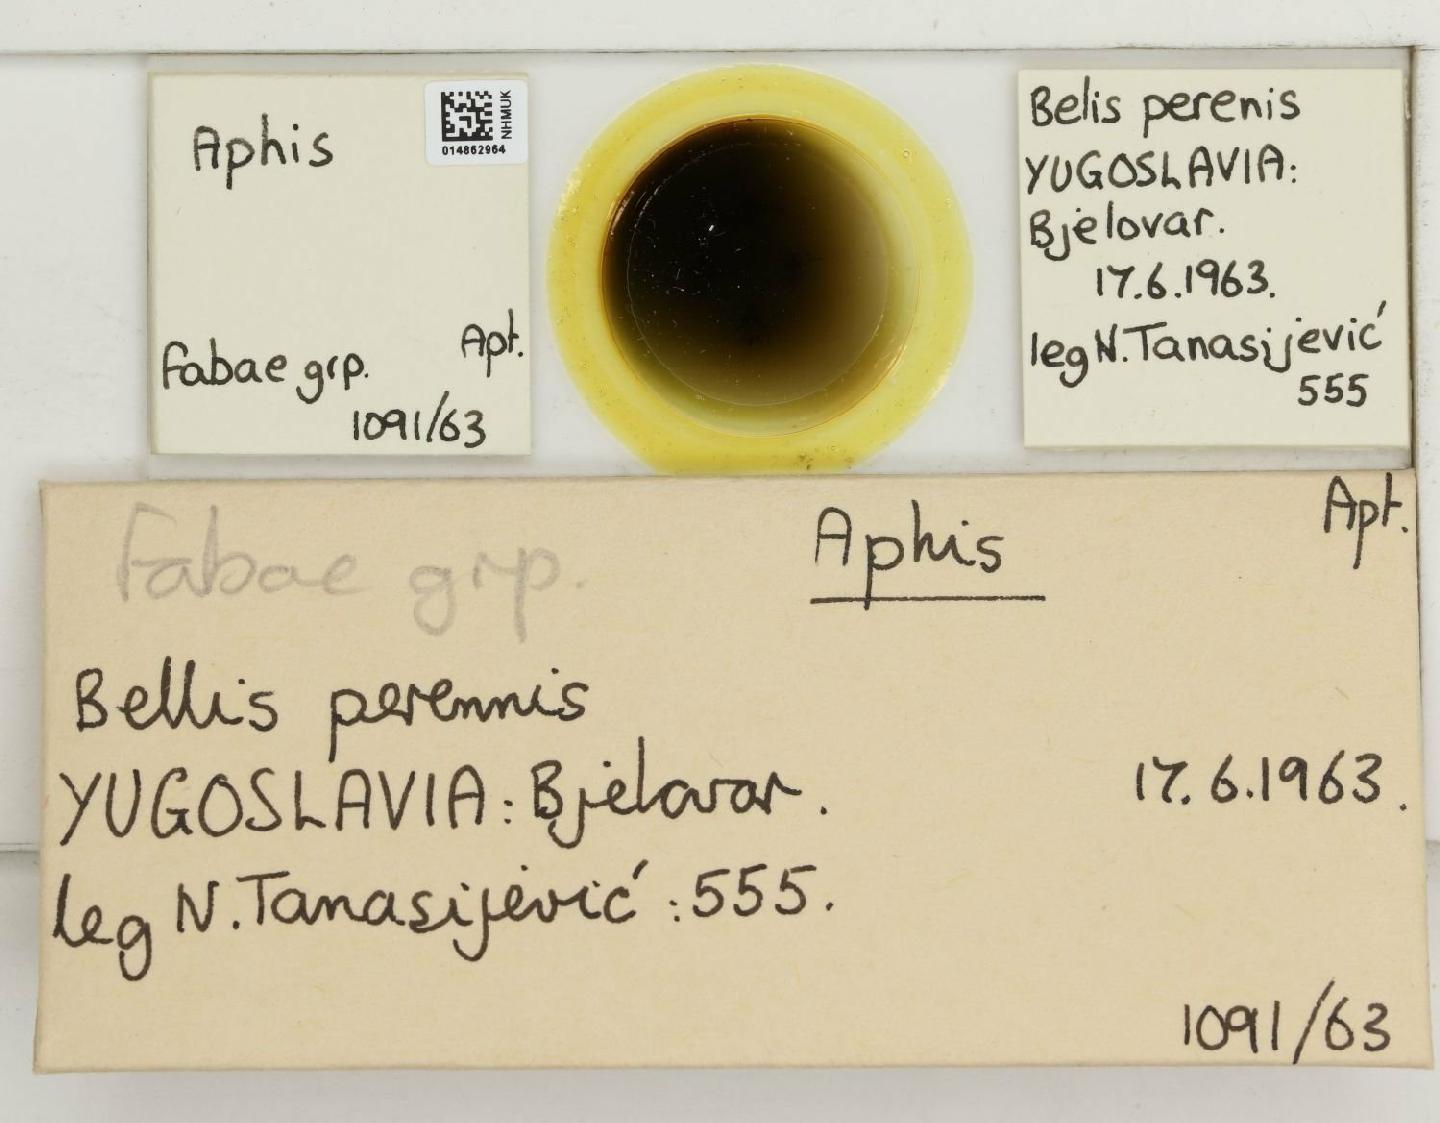 Aphis
NHMUK
014862964
Fabae grp.
Apt.
1091/63
Belis perenis
YUGOSLAVIA:
Bjelovar.
17.6.1963.
leg N. Tanasijević
555
Fabae grp.
Aphis
Apt.
Bellis perennis
YUGOSLAVIA: Bjelovar.
17.6.1963.
leg N. Tanasijević : 555.
1091/63